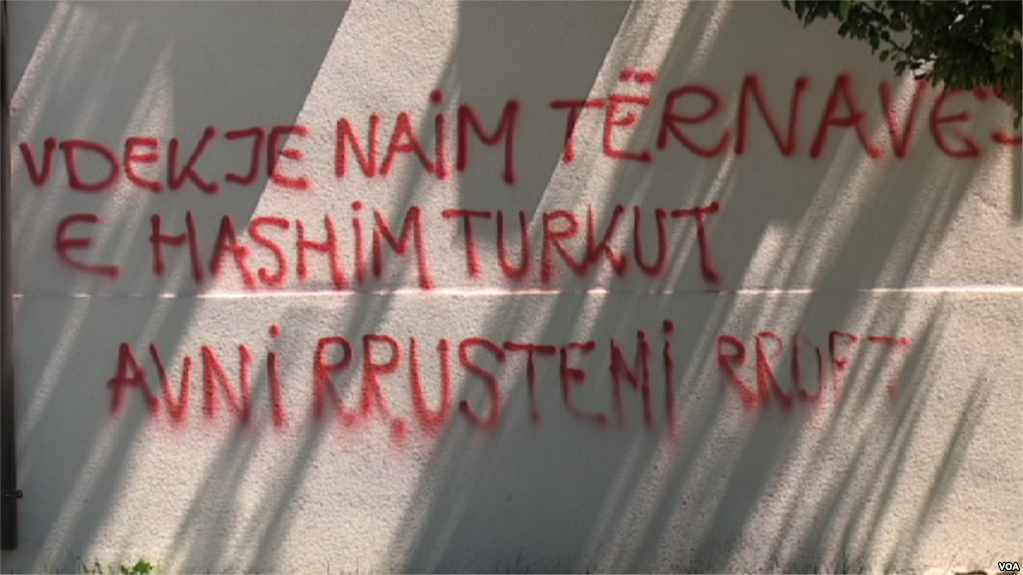 VDEKJE NAiM TËRNAVES
E HASHiM TURKUT
AVNi RRUSTEMi RROFT
VOA